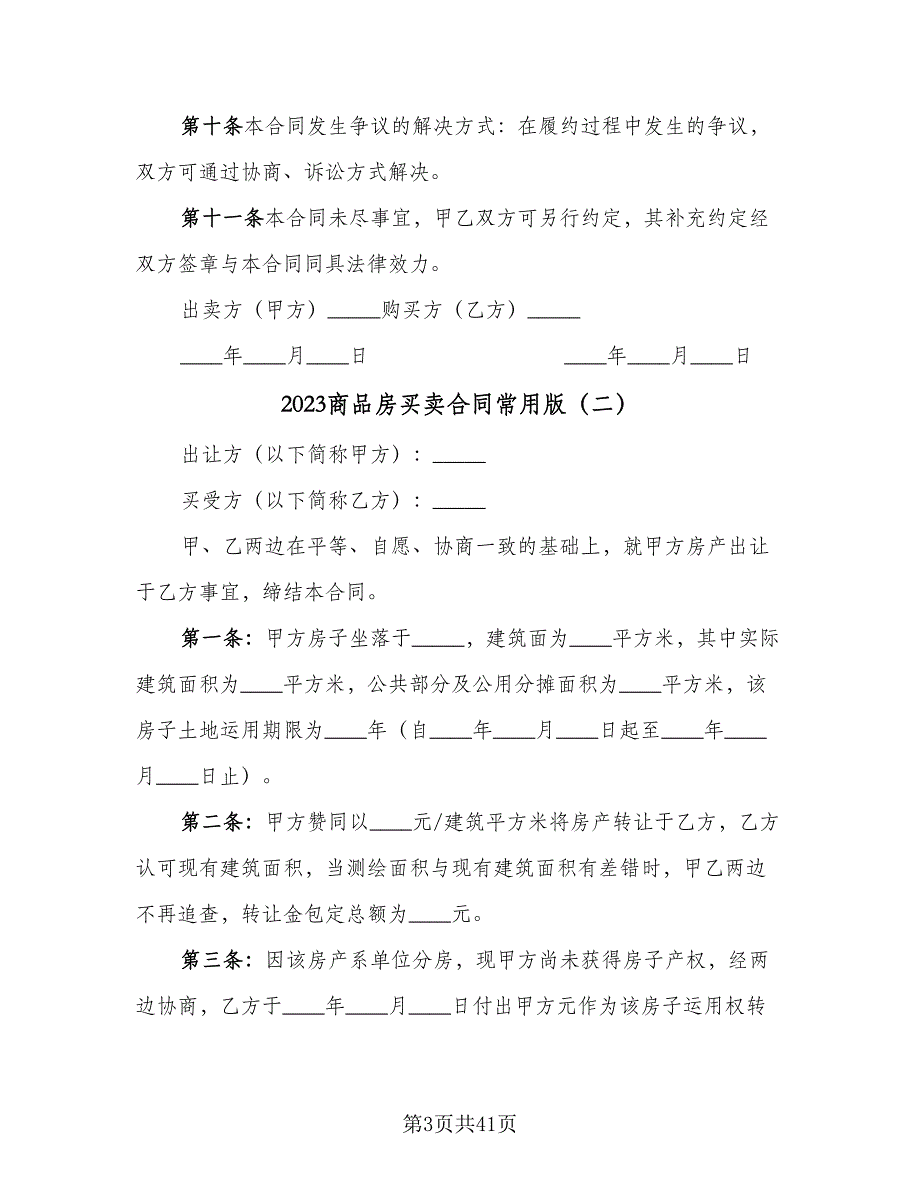 第十条本合同发生争议的解决方式：在履约过程中发生的争议，
双方可通过协商、诉讼方式解决。
第十一条本合同未尽事宜，甲乙双方可另行约定，其补充约定经
双方签章与本合同同具法律效力。
出卖方（甲方）_____购买方（乙方）_____
____年____月____日 ____年____月____日
2023商品房买卖合同常用版（二）
出让方（以下简称甲方）：_____
买受方（以下简称乙方）：_____
甲、乙两边在平等、自愿、协商一致的基础上，就甲方房产出让
于乙方事宜，缔结本合同。
第一条：甲方房子坐落于_____，建筑面为____平方米，其中实际
建筑面积为____平方米，公共部分及公用分摊面积为____平方米，该
房子土地运用期限为____年（自____年____月____日起至____年____
月____日止）。
第二条：甲方赞同以____元/建筑平方米将房产转让于乙方，乙方
认可现有建筑面积，当测绘面积与现有建筑面积有差错时，甲乙两边
不再追查，转让金包定总额为____元。
第三条：因该房产系单位分房，现甲方尚未获得房子产权，经两
边协商，乙方于____年____月____日付出甲方元作为该房子运用权转
第3页共41页